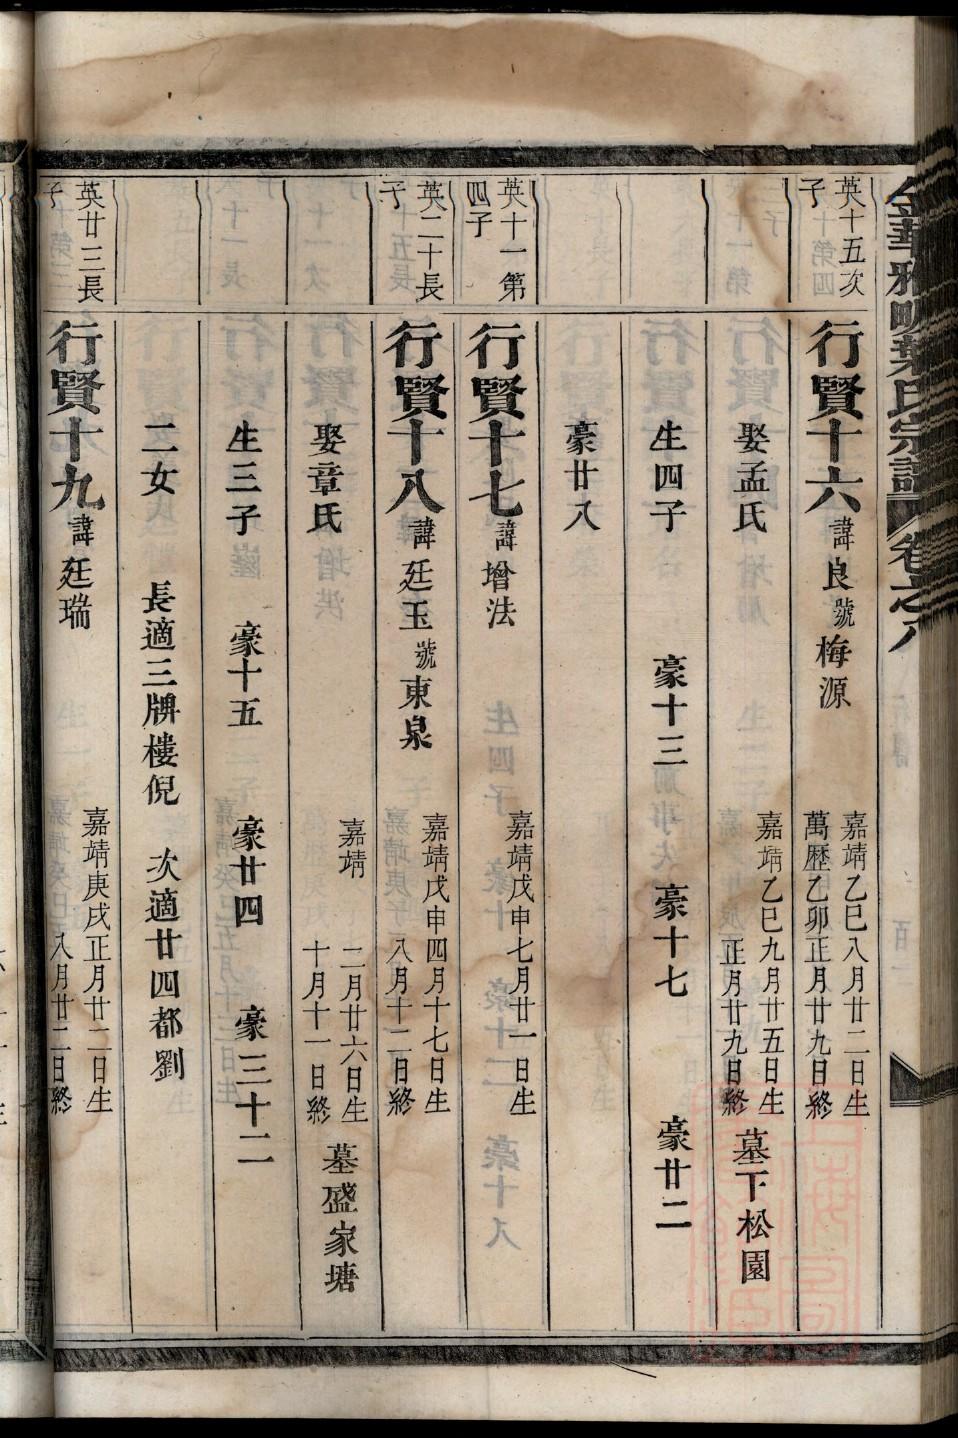 金華雅畈葉氏宗譜 卷之八
英十五次子
行賢十六 諱良 號梅源 嘉靖乙巳八月廿二日生 萬歷乙卯正月廿九日終
娶孟氏 嘉靖乙巳九月廿五日生 正月廿九日終 墓下松園
生四子 豪十三 豪十七 豪廿二
豪廿八
英十一第四子
行賢十七 諱增法 嘉靖戊申七月廿一日生
英二十長子
行賢十八 諱廷玉 號東泉 嘉靖戊申四月十七日生 八月十二日終
娶章氏 嘉靖 二月廿六日生 十月十一日終 墓盛家塘
生三子 豪十五 豪廿四 豪三十二
二女 長適三牌樓倪 次適廿四都劉
英廿三長子
行賢十九 諱廷瑞 嘉靖庚戌正月廿二日生 八月廿二日終